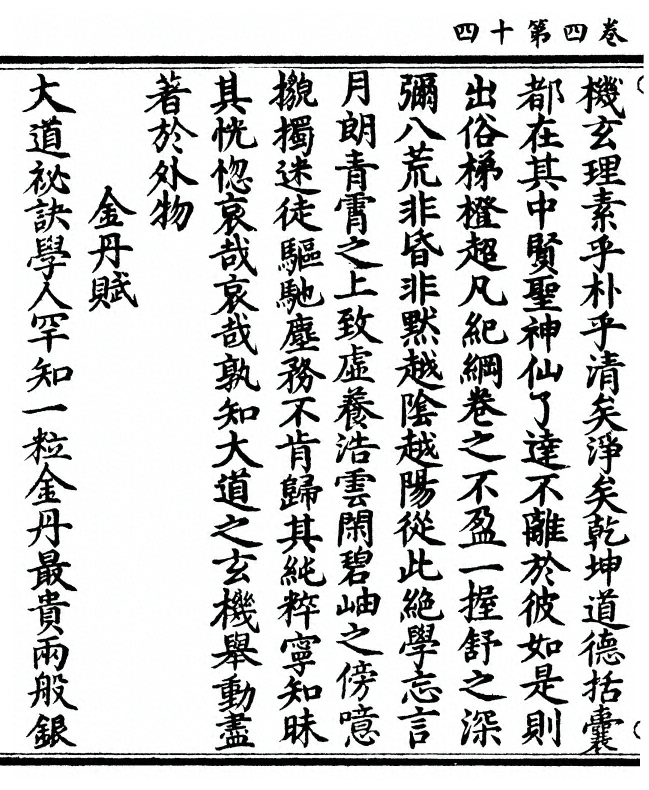 卷四第十四
機玄理素乎朴乎清矣淨矣乾坤道德括囊
都在其中賢聖神仙了達不離於彼如是則
出俗梯橙超凡紀綱卷之不盈一握舒之深
彌八荒非昏非默越陰越陽從此絶學忘言
月朗青霄之上致虛養浩雲閑碧岫之傍噫
擬獨迷徒驅馳塵務不肯歸其純粹寧知昧
其恍惚哀哉哀哉孰知大道之玄機舉動盡
著於外物
金丹賦
大道祕訣學人罕知一粒金丹最貴兩般銀